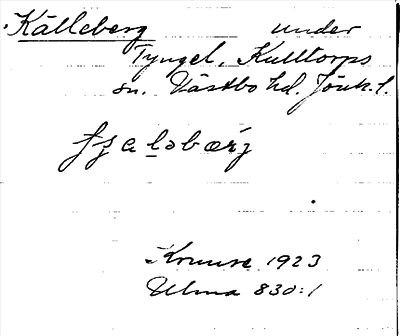 Källeberg under
Tyngel, Kulltorps
sn. Västbo hd. Jönk. l.
Krunse 1923
Ulma 830:1